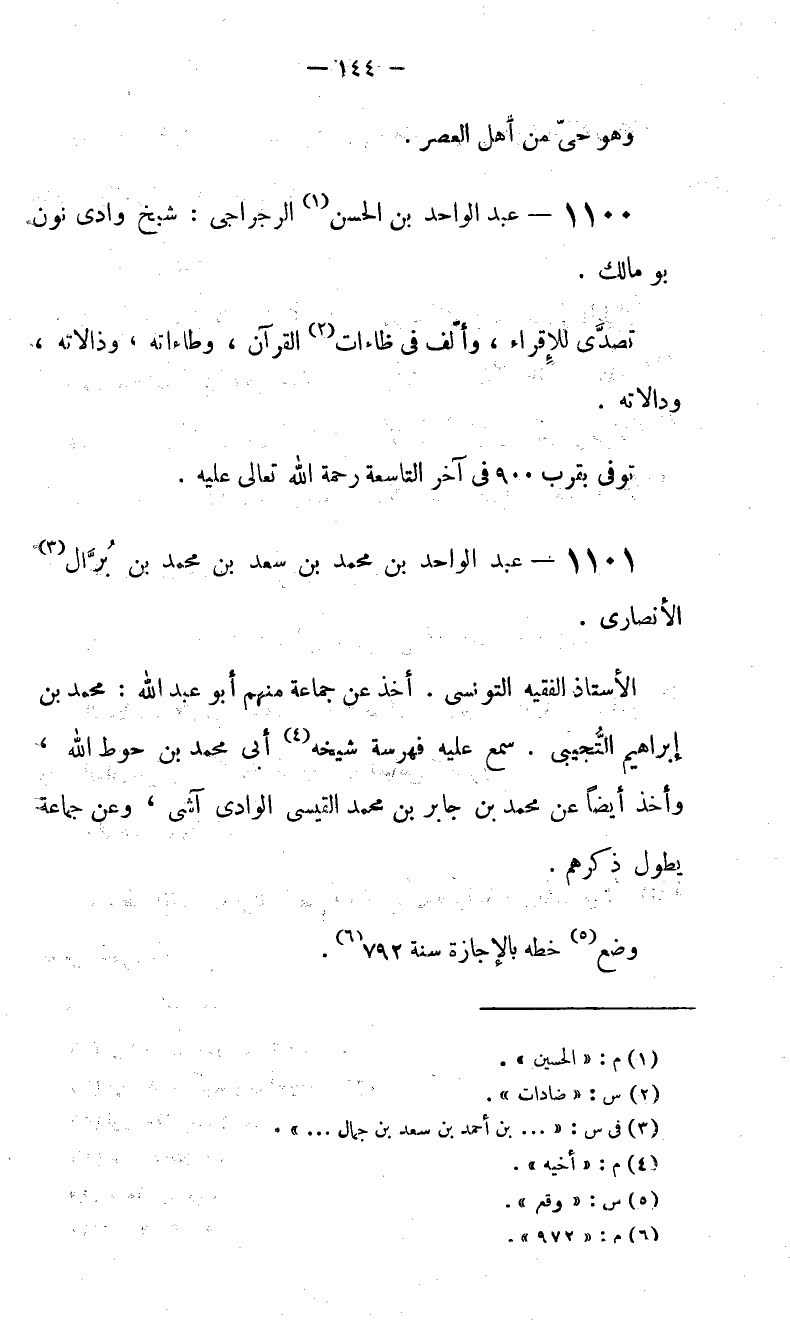 — ١٤٤ —
وهو حىّ من أهل العصر .
١١٠٠ — عبد الواحد بن الحسن(١) الرجراجى : شيخ وادى نون
بو مالك .
تصدَّى للإِقراء ، وألّف فى ظاءات(٢) القرآن ، وطاءاته ، وذالاته ،
ودالاته .
توفى بقرب ٩٠٠ فى آخر التاسعة رحمة الله تعالى عليه .
١١٠١ — عبد الواحد بن محمد بن سعد بن محمد بن بُرَّال(٣)
الأنصارى .
الأستاذ الفقيه التونسى . أخذ عن جماعة منهم أبو عبد الله : محمد بن
إبراهيم التُّجيبى . سمع عليه فهرسة شيخه(٤) أبى محمد بن حوط الله ،
وأخذ أيضاً عن محمد بن جابر بن محمد القيسى الوادى آشى ، وعن جماعة
يطول ذكرهم .
وضع(٥) خطه بالإجازة سنة ٧٩٢(٦) .
(١) م : « الحسين » .
(٢) س : « ضادات » .
(٣) فى س : « ... بن أحمد بن سعد بن جمال ... » .
(٤) م : « أخيه » .
(٥) س : « وقع » .
(٦) م : « ٩٧٢ » .